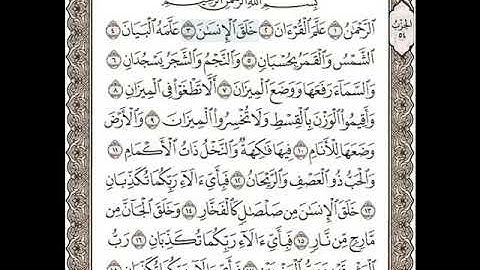 بِسْمِ اللَّهِ الرَّحْمَٰنِ الرَّحِيمِ
الرَّحْمَٰنُ ١ عَلَّمَ الْقُرْءَانَ ٢ خَلَقَ الْإِنسَٰنَ ٣ عَلَّمَهُ الْبَيَانَ ٤
الحزب ٥٤
الشَّمْسُ وَالْقَمَرُ بِحُسْبَانٍ ٥ وَالنَّجْمُ وَالشَّجَرُ يَسْجُدَانِ ٦
وَالسَّمَاءَ رَفَعَهَا وَوَضَعَ الْمِيزَانَ ٧ أَلَّا تَطْغَوْا فِي الْمِيزَانِ ٨
وَأَقِيمُوا الْوَزْنَ بِالْقِسْطِ وَلَا تُخْسِرُوا الْمِيزَانَ ٩ وَالْأَرْضَ
وَضَعَهَا لِلْأَنَامِ ١٠ فِيهَا فَٰكِهَةٌ وَالنَّخْلُ ذَاتُ الْأَكْمَامِ ١١
وَالْحَبُّ ذُو الْعَصْفِ وَالرَّيْحَانُ ١٢ فَبِأَيِّ ءَالَاءِ رَبِّكُمَا تُكَذِّبَانِ
١٣ خَلَقَ الْإِنسَٰنَ مِن صَلْصَٰلٍ كَالْفَخَّارِ ١٤ وَخَلَقَ الْجَانَّ مِن
مَّارِجٍ مِّن نَّارٍ ١٥ فَبِأَيِّ ءَالَاءِ رَبِّكُمَا تُكَذِّبَانِ ١٦ رَبُّ